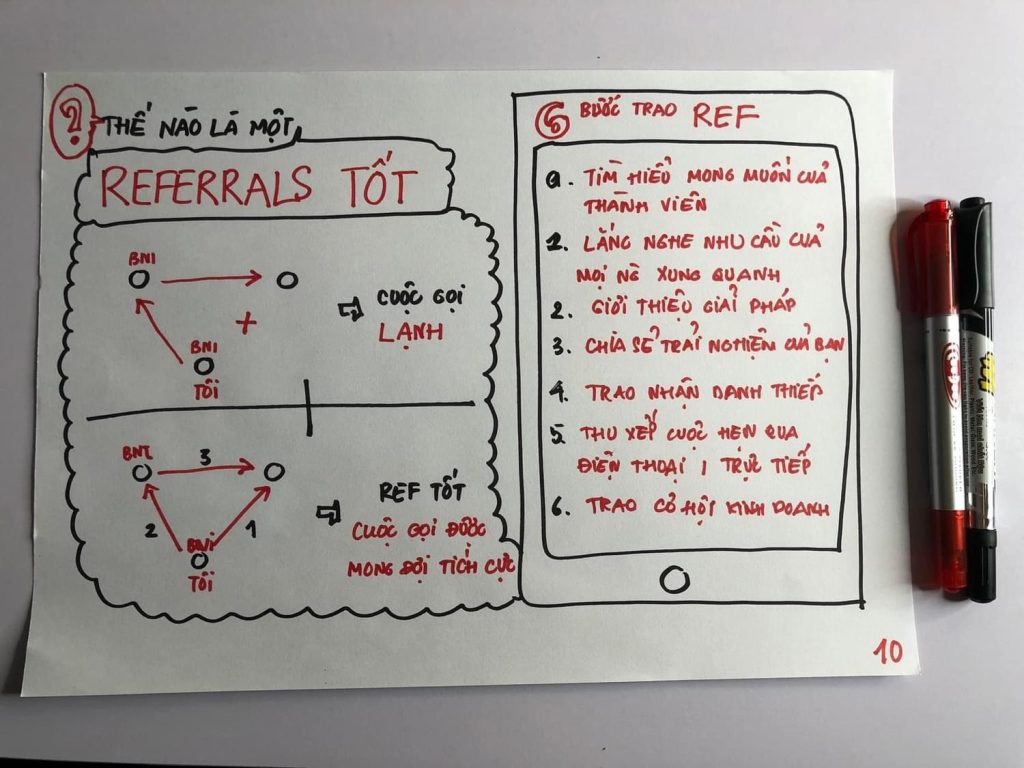 ?
THẾ NÀO LÀ MỘT
REFERRALS TỐT
BNI
+
BNI
TÔI
CUỘC GỌI
LẠNH
BNI
3
2
1
BNI
TÔI
REF TỐT
CUỘC GỌI ĐƯỢC
MONG ĐỢI TÍCH CỰC
6 BƯỚC TRAO REF
0. TÌM HIỂU MONG MUỐN CỦA
THÀNH VIÊN
1. LẮNG NGHE NHU CẦU CỦA
MỌI NG XUNG QUANH
2. GIỚI THIỆU GIẢI PHÁP
3. CHIA SẺ TRẢI NGHIỆN CỦA BẠN
4. TRAO NHẬN DANH THIẾP
5. THU XẾP CUỘC HẸN QUA
ĐIỆN THOẠI / TRỰC TIẾP
6. TRAO CƠ HỘI KINH DOANH
10